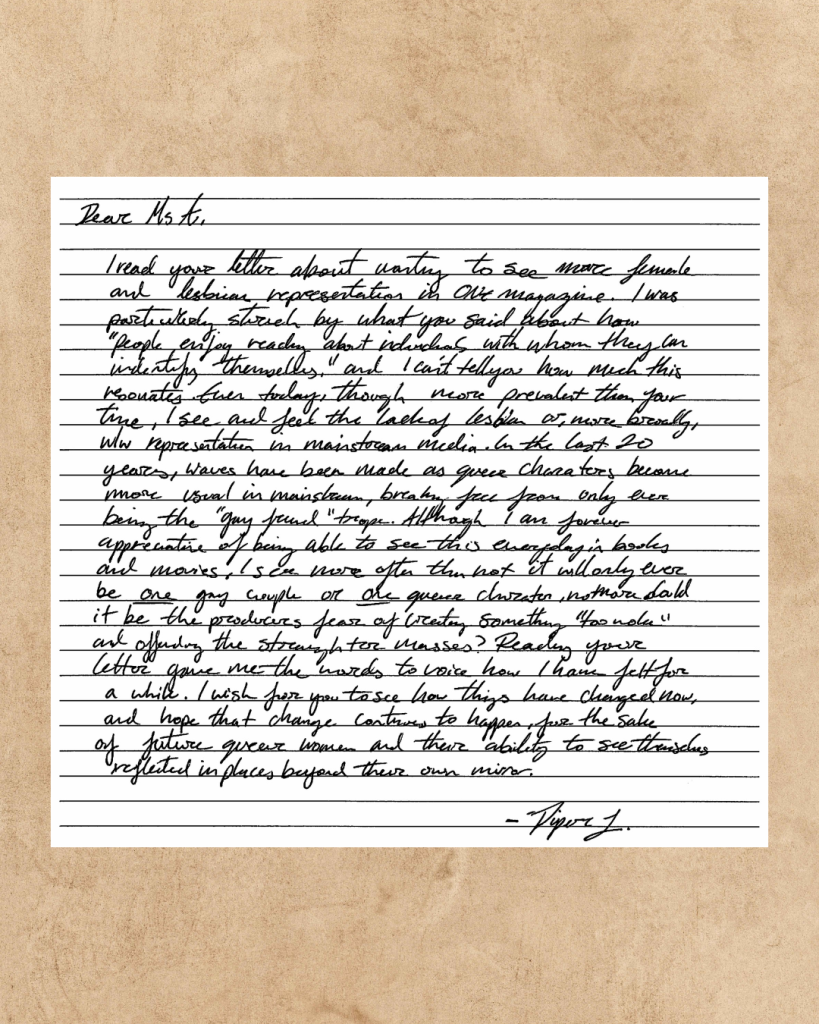 Dear Ms A,
I read your letter about wanting to see more female
and lesbian representation in ONE magazine. I was
particularly struck by what you said about how
"people enjoy reading about individuals with whom they can
indentify themselves," and I can't tell you how much this
resonates. Even today, though more prevalent than your
time, I see and feel the lack of lesbian or, more broadly,
wlw representation in mainstream media. In the last 20
years, waves have been made as queer charaters become
more usual in mainstream, breaking free from only ever
being the "gay friend" trope. Although I am forever
appreciative of being able to see this everyday in books
and movies, I see more often than not it will only ever
be one gay couple or one queer charater, no more. Could
it be the producers fear of creating something "too
and offending the straighter masses? Reading your
letter gave me the words to voice how I have felt for
a while. I wish for you to see how things have changed now,
and hope that change continues to happen, for the sake
of future queer women and their ability to see themselves
reflected in places beyond their own mirror.
- Piper L.